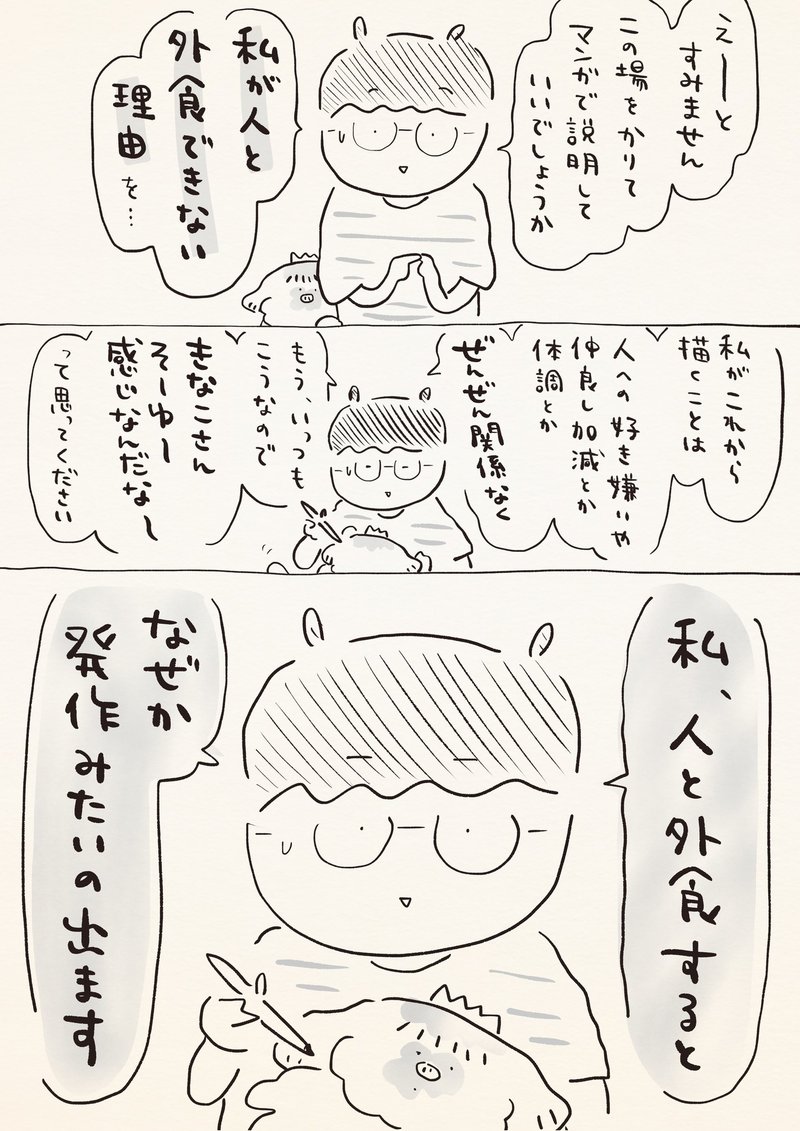 えーと
すみません
この場をかりて
マンガで説明して
いいでしょうか
私が人と
外食できない
理由を…
私がこれから
描くことは
人への好き嫌いや
仲良し加減とか
体調とか
ぜんぜん関係なく
もう、いっつも
こうなので
きなこさん
そーゆー
感じなんだな〜
って思ってください
私、人と外食すると
なぜか
発作みたいの出ます